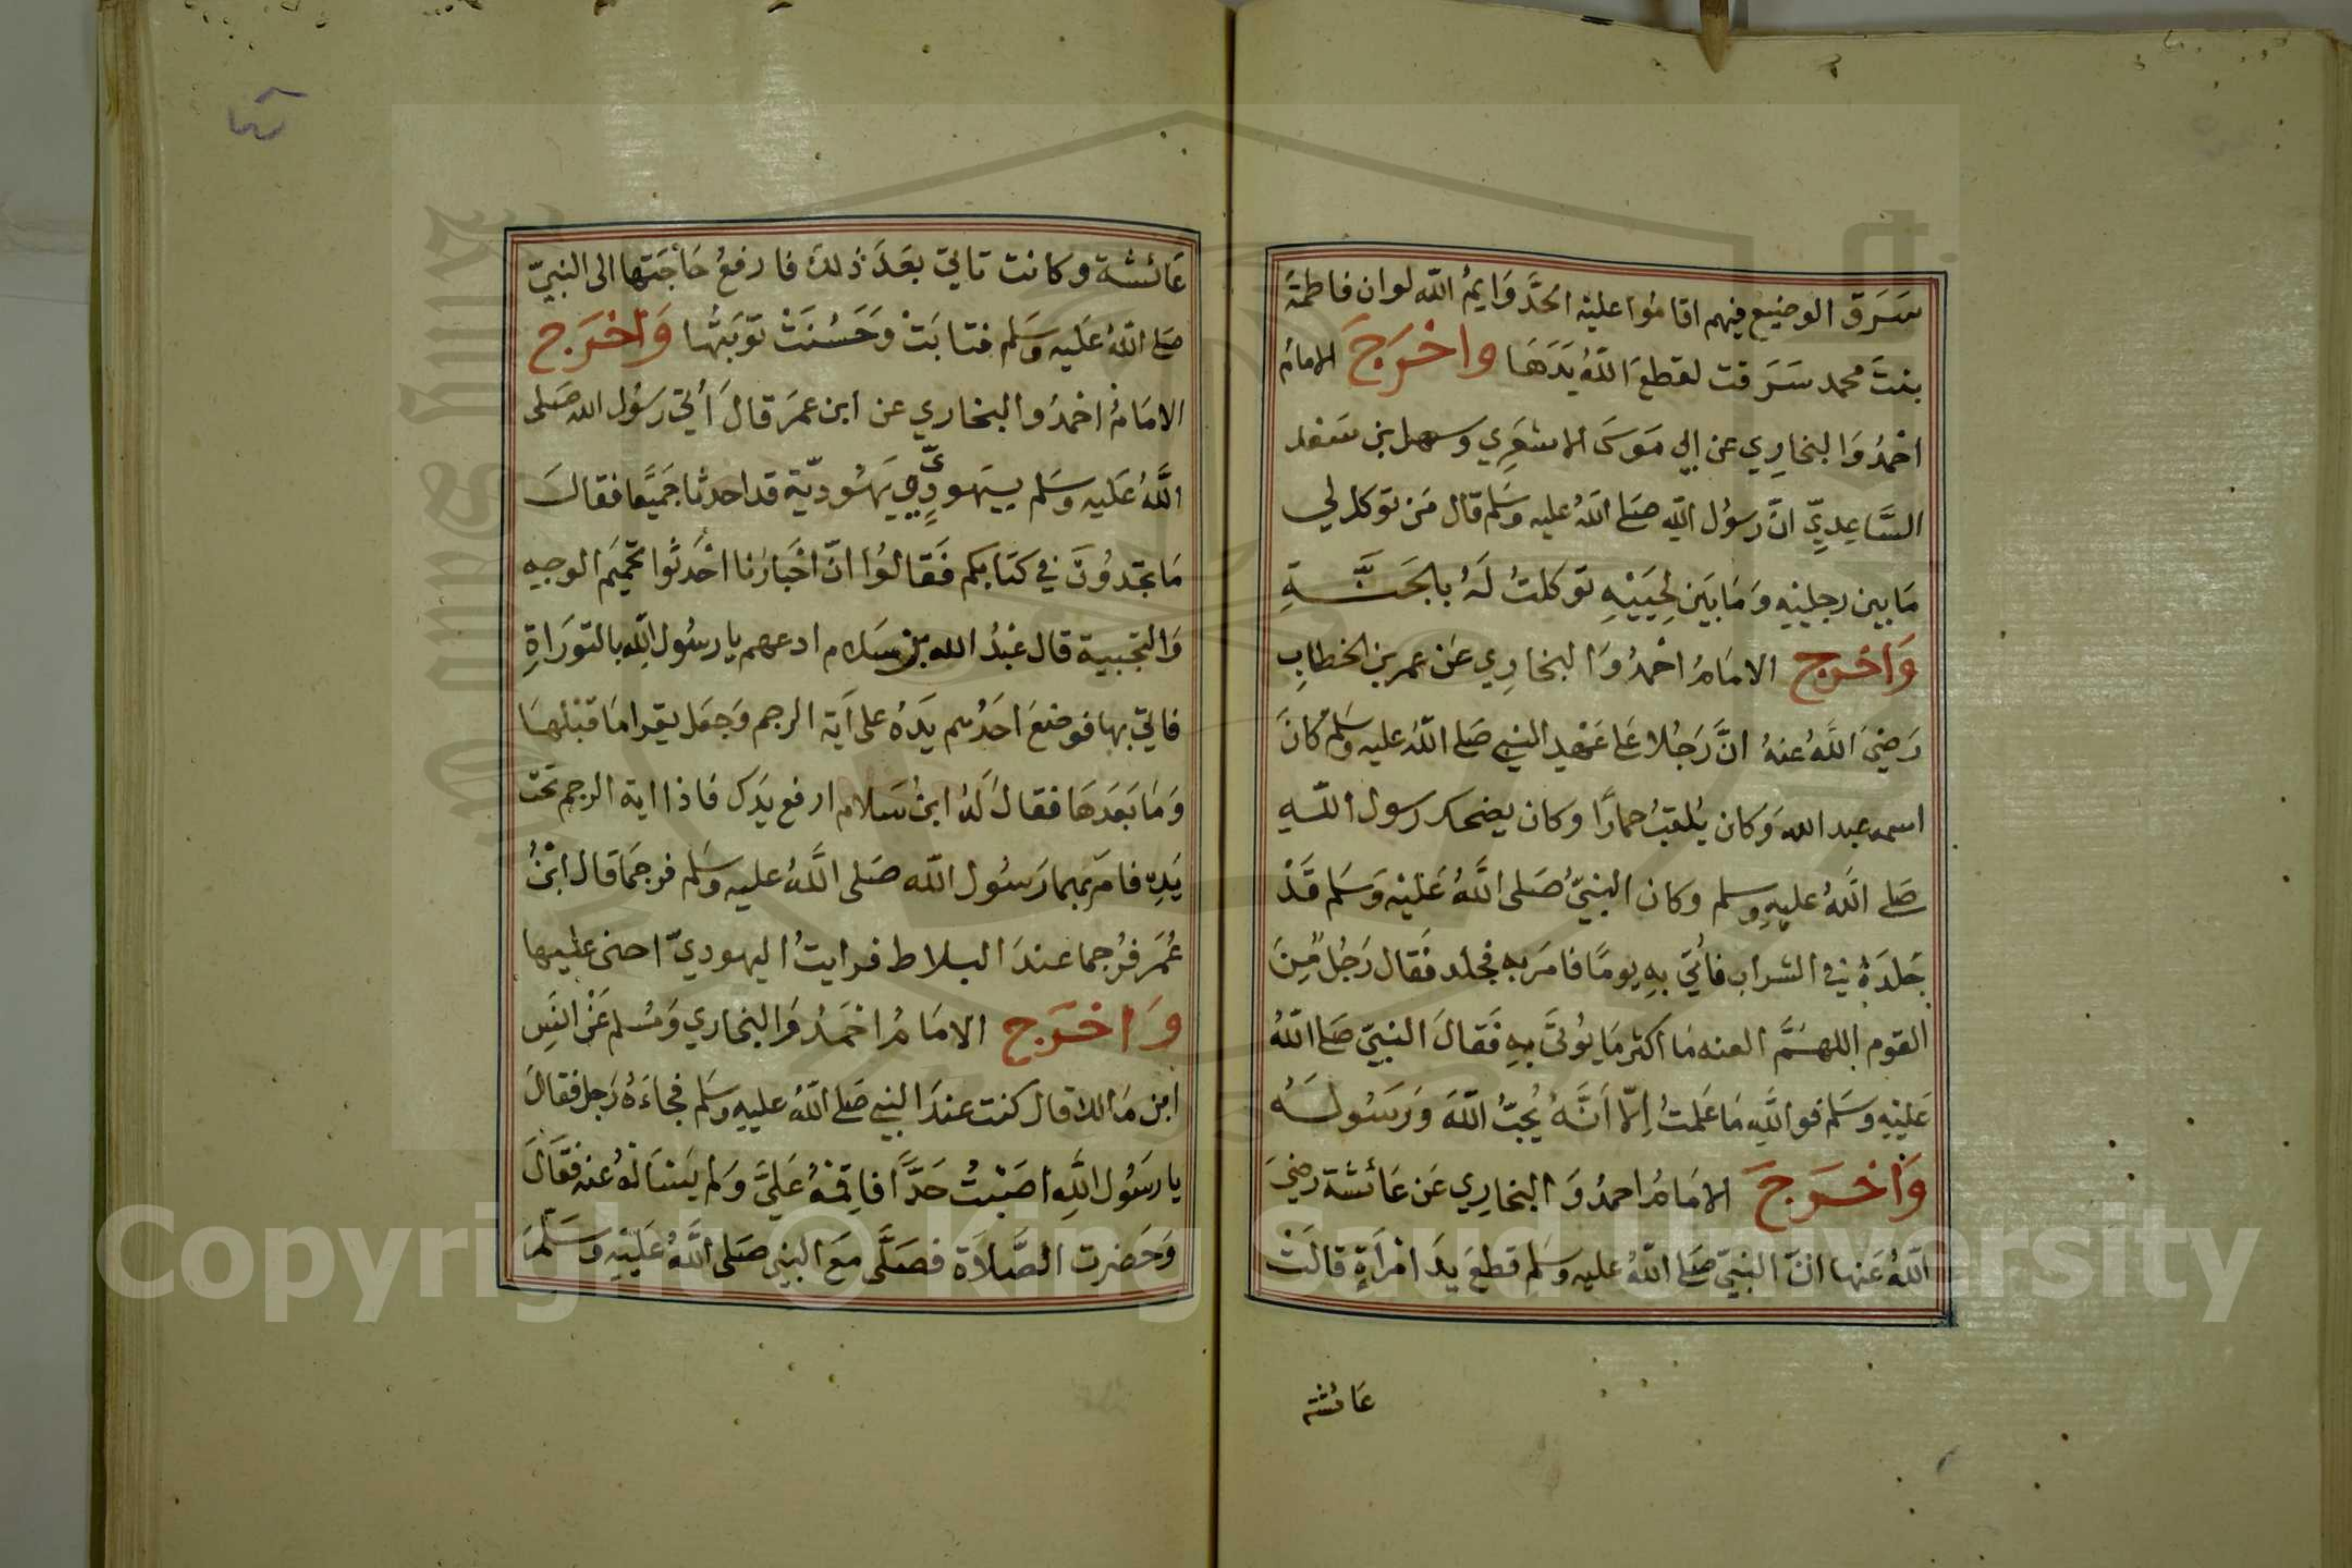 سَرَقَ الوضيع فيهم اقاموا عليه الحَدَّ وَايمُ اللّه لو ان فاطمةَ
بنتَ محمد سَرَقت لقطعَ اللّهُ يَدَهَا واخرَجَ الامامُ
احْمدُ وَالبخارِي عن ابي مَوسَى الاشعَرِي وسهل بن سَعد
السَّاعِدِيِّ انَّ رسوُل اللّه صَلى اللّهُ عليه وسَلم قال مَن توكل لي
مَابين رجليْهِ وَمَا بَيَن لحِيَيْهِ توكلتُ لَهُ بالجَنَّةِ
وَاخرج الامَامُ احْمدُ وَالبخارِي عَن عمر بن الخطابِ
رَضيَ اللَّهُ عنهُ انَّ رَجُلا عَلى عَهْدِ النبي صَلى اللّهُ عليه وسَلم كانَ
اسمه عبد اللّه وَكان يُلقبُ حمارًا وكان يضحك رسول اللّهِ
صَلى اللَّهُ عليهِ وسلم وكان النبيّ صَلى اللَّهُ عَليْهِ وَسَلم قَدْ
جَلدَهُ في الشراب فأتيَ بهِ يومًا فامَر به فجلد فَقال رَجُلٌ مِنَ
القوم اللهمَّ العنه مَا اكثر مَا يُوتَى بهِ فَقالَ النبيّ صَلى اللّهُ
عَليْهِ وسَلم فواللَّهِ مَا عَلمتُ اِلّا اَنَّهُ يُحبّ اللّهَ وَرَسُولَهُ
وَاخرَجَ الامَامُ احمدُ وَالبخارِي عَن عَائشة رضيَ
اللّهُ عَنها انّ النبيّ صَلى اللّهُ عليه وسَلم قطعَ يَدَ امْرَاَةٍ قالَتْ
عائشة
عَائشة وكانت تاتي بعَدَ ذلك فارفعُ حَاجَتَها الى النبيّ
صَلى اللّهُ عَليه وسَلم فتابَتْ وَحَسُنَتْ تَوبَتُها وَاخرَج
الامَامُ احْمدُ والبخاري عن ابن عمرَ قالَ أُتيَ رَسُول الله صَلى
اللَّهُ عَليه وسَلم بيَهوديٍّ وَيَهُوديّة قد احدثا جَميعًا فقالَ
مَا تجدوُنَ في كتابكم فَقالوُا انّ اَحَبارَنا اَحْدَثُوا تحميَم الوجه
وَالتجبية قال عَبْدُ الله بن سَلام ادعهم يا رسُول اللّه بالتورَاةِ
فاتيَ بها فوضعَ احَدُهم يَدَهُ على آية الرجم وَجعَل يقرا مَا قبْلهَا
وَمَا بَعَدَهَا فقالَ لَهُ ابنُ سَلام ارفع يَدَك فاذا اية الرجم تحَت
يَدِه فامَر بهما رَسُول اللّه صَلى اللَّهُ عليه وسَلم فرجمَا قال ابْنُ
عُمَر فرُجما عندَ البلاط فرايتُ اليهوديّ احنى عليها
وَاخرَج الامَامُ احْمَدُ وَالبخاري وَمُسلم عَنْ انَسِ
ابن مَالك قال كنت عندَ النبي صَلى اللّهُ عليهِ وسَلم فجاءَهُ رَجل فقالَ
يا رَسُول اللَّهِ اصَبْتُ حَدًّا فاقِمْهُ عَليَّ وَلم يَسْاَلهُ عَنه فقَالَ
وَحَضرت الصَّلاَة فصَلَّى مَعَ النبي صَلى اللَّهُ عَليْهِ وسَلَّمَ
Copyright © King Saud University